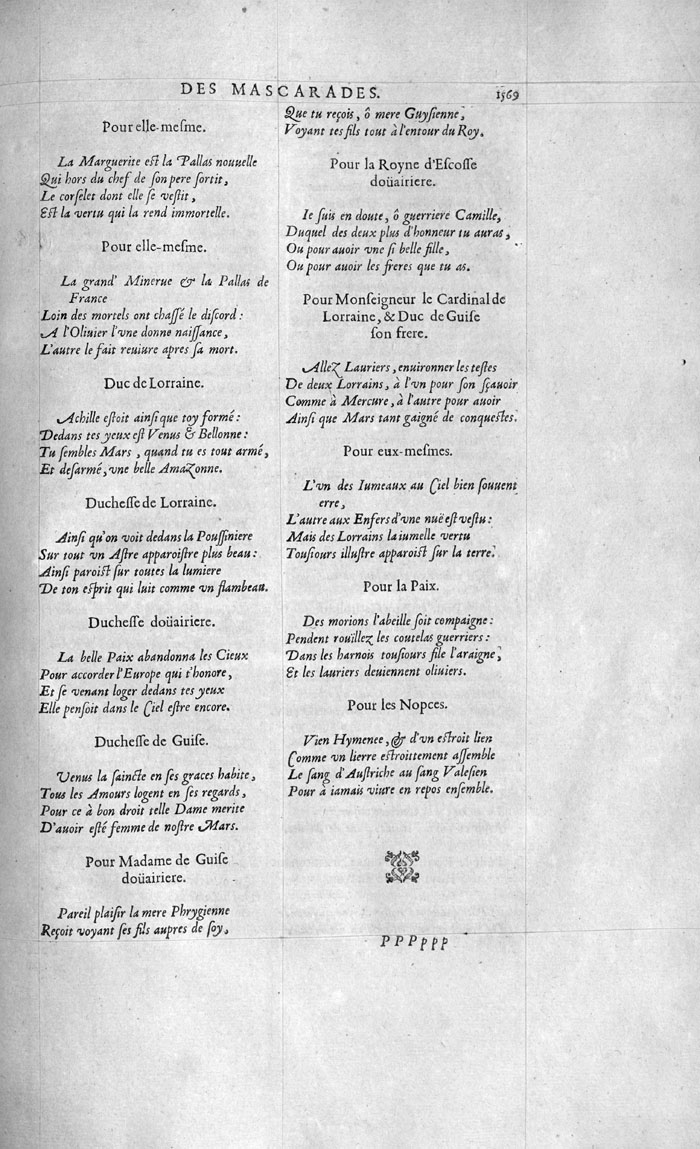 DES MASCARADES. 1569
Pour elle-meſme.
La Marguerite eſt la Pallas nouuelle
Qui hors du chef de ſon pere ſortit,
Le corſelet dont elle ſe veſtit,
Eſt la vertu qui la rend immortelle.
Pour elle-meſme.
La grand' Minerue & la Pallas de
France
Loin des mortels ont chaſſé le diſcord:
A l'Oliuier l'vne donne naiſſance,
L'autre le fait reuiure apres ſa mort.
Duc de Lorraine.
Achille eſtoit ainſi que toy formé:
Dedans tes yeux eſt Venus & Bellonne:
Tu ſembles Mars, quand tu es tout armé,
Et deſarmé, vne belle Amazonne.
Ducheſſe de Lorraine.
Ainſi qu'on voit dedans la Pouſſiniere
Sur tout vn Aſtre apparoiſtre plus beau:
Ainſi paroiſt ſur toutes la lumiere
De ton eſprit qui luit comme vn flambeau.
Ducheſſe doüairiere.
La belle Paix abandonna les Cieux
Pour accorder l'Europe qui t'honore,
Et ſe venant loger dedans tes yeux
Elle penſoit dans le Ciel eſtre encore.
Ducheſſe de Guiſe.
Venus la ſaincte en ſes graces habite,
Tous les Amours logent en ſes regards,
Pour ce à bon droit telle Dame merite
D'auoir eſté femme de noſtre Mars.
Pour Madame de Guiſe
doüairiere.
Pareil plaiſir la mere Phrygienne
Reçoit voyant ſes fils aupres de ſoy,
Que tu reçois, ô mere Guyſienne,
Voyant tes fils tout à l'entour du Roy.
Pour la Royne d'Eſcoſſe
doüairiere.
Ie ſuis en doute, ô guerriere Camille,
Duquel des deux plus d'honneur tu auras,
Ou pour auoir vne ſi belle fille,
Ou pour auoir les freres que tu as.
Pour Monſeigneur le Cardinal de
Lorraine, & Duc de Guiſe
ſon frere.
Allez Lauriers, enuironner les teſtes
De deux Lorrains, à l'vn pour ſon ſçauoir
Comme à Mercure, à l'autre pour auoir
Ainſi que Mars tant gaigné de conqueſtes.
Pour eux-meſmes.
L'vn des Iumeaux au Ciel bien ſouuent
erre,
L'autre aux Enfers d'vne nuë eſt veſtu:
Mais des Lorrains la iumelle vertu
Touſiours illuſtre apparoiſt ſur la terre.
Pour la Paix.
Des morions l'abeille ſoit compaigne:
Pendent roüillez les coutelas guerriers:
Dans les harnois touſiours file l'araigne,
Et les lauriers deuiennent oliuiers.
Pour les Nopces.
Vien Hymenee, & d'vn eſtroit lien
Comme vn lierre eſtroittement aſſemble
Le ſang d'Auſtriche au ſang Valeſien
Pour à iamais viure en repos enſemble.
PPPppp